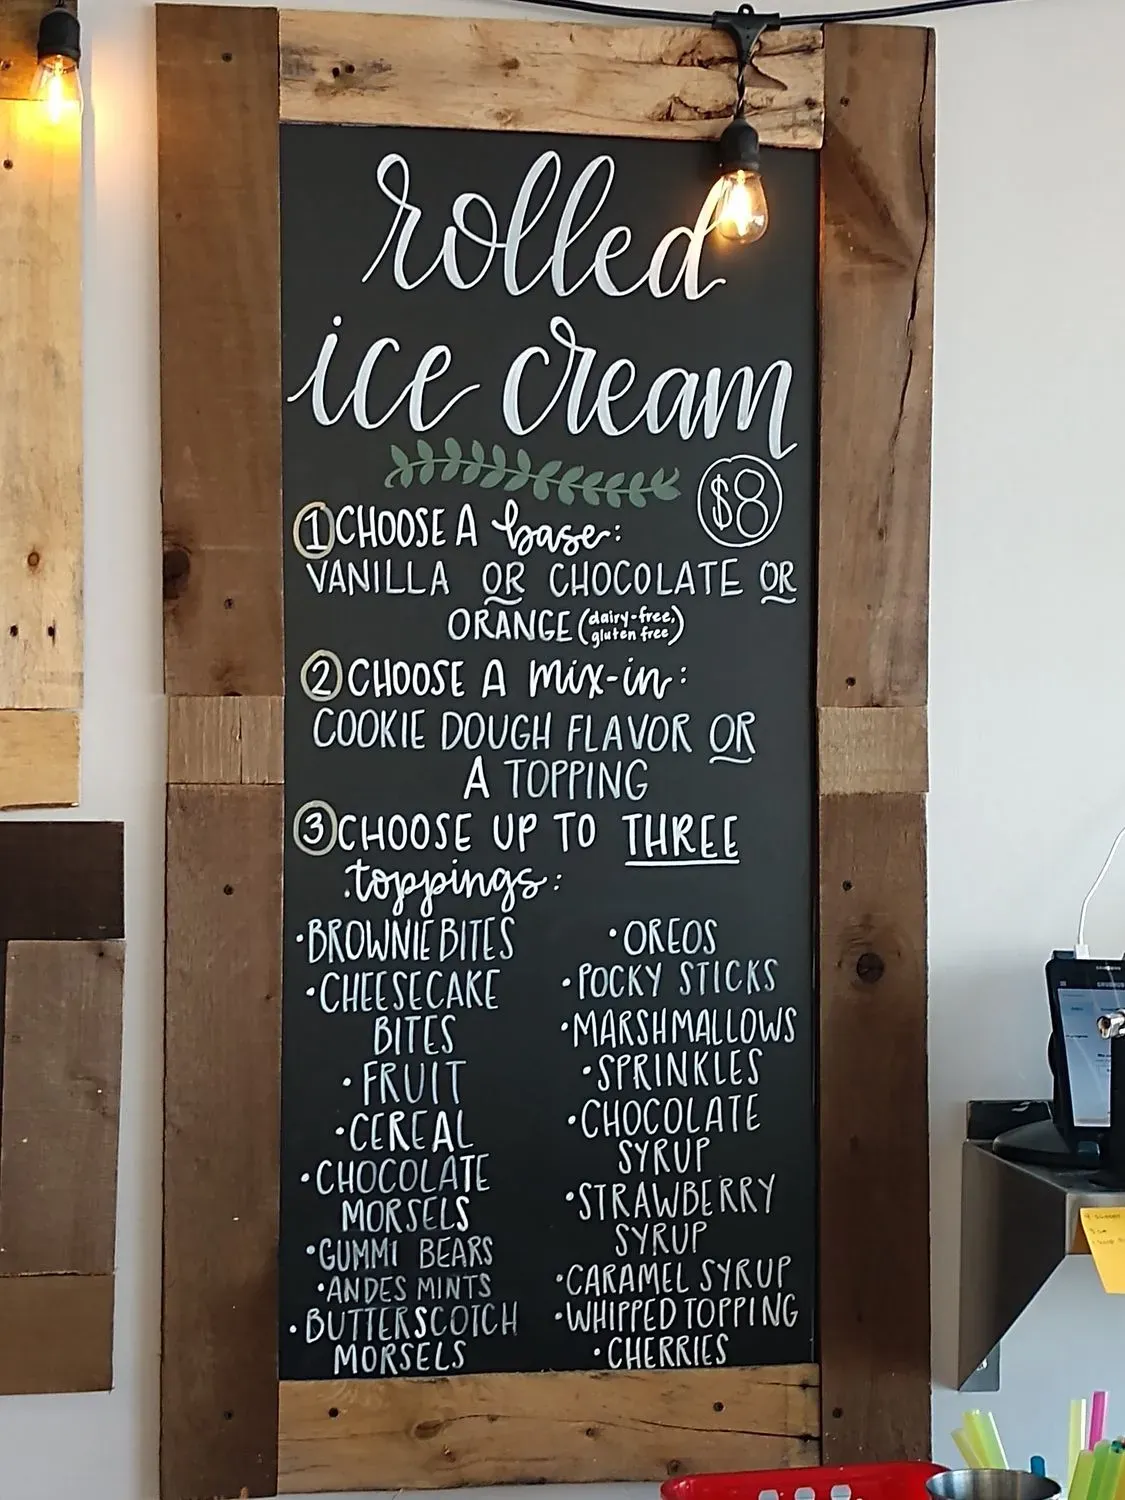 rolled
ice cream
$8
1 CHOOSE A base:
VANILLA OR CHOCOLATE OR
ORANGE (dairy-free, gluten free)
2 CHOOSE A mix-in:
COOKIE DOUGH FLAVOR OR
A TOPPING
3 CHOOSE UP TO THREE
toppings:
•BROWNIE BITES
•CHEESECAKE
BITES
•FRUIT
•CEREAL
•CHOCOLATE
MORSELS
•GUMMI BEARS
•ANDES MINTS
•BUTTERSCOTCH
MORSELS
•OREOS
•POCKY STICKS
•MARSHMALLOWS
•SPRINKLES
•CHOCOLATE
SYRUP
•STRAWBERRY
SYRUP
•CARAMEL SYRUP
•WHIPPED TOPPING
•CHERRIES
SAMSUNG